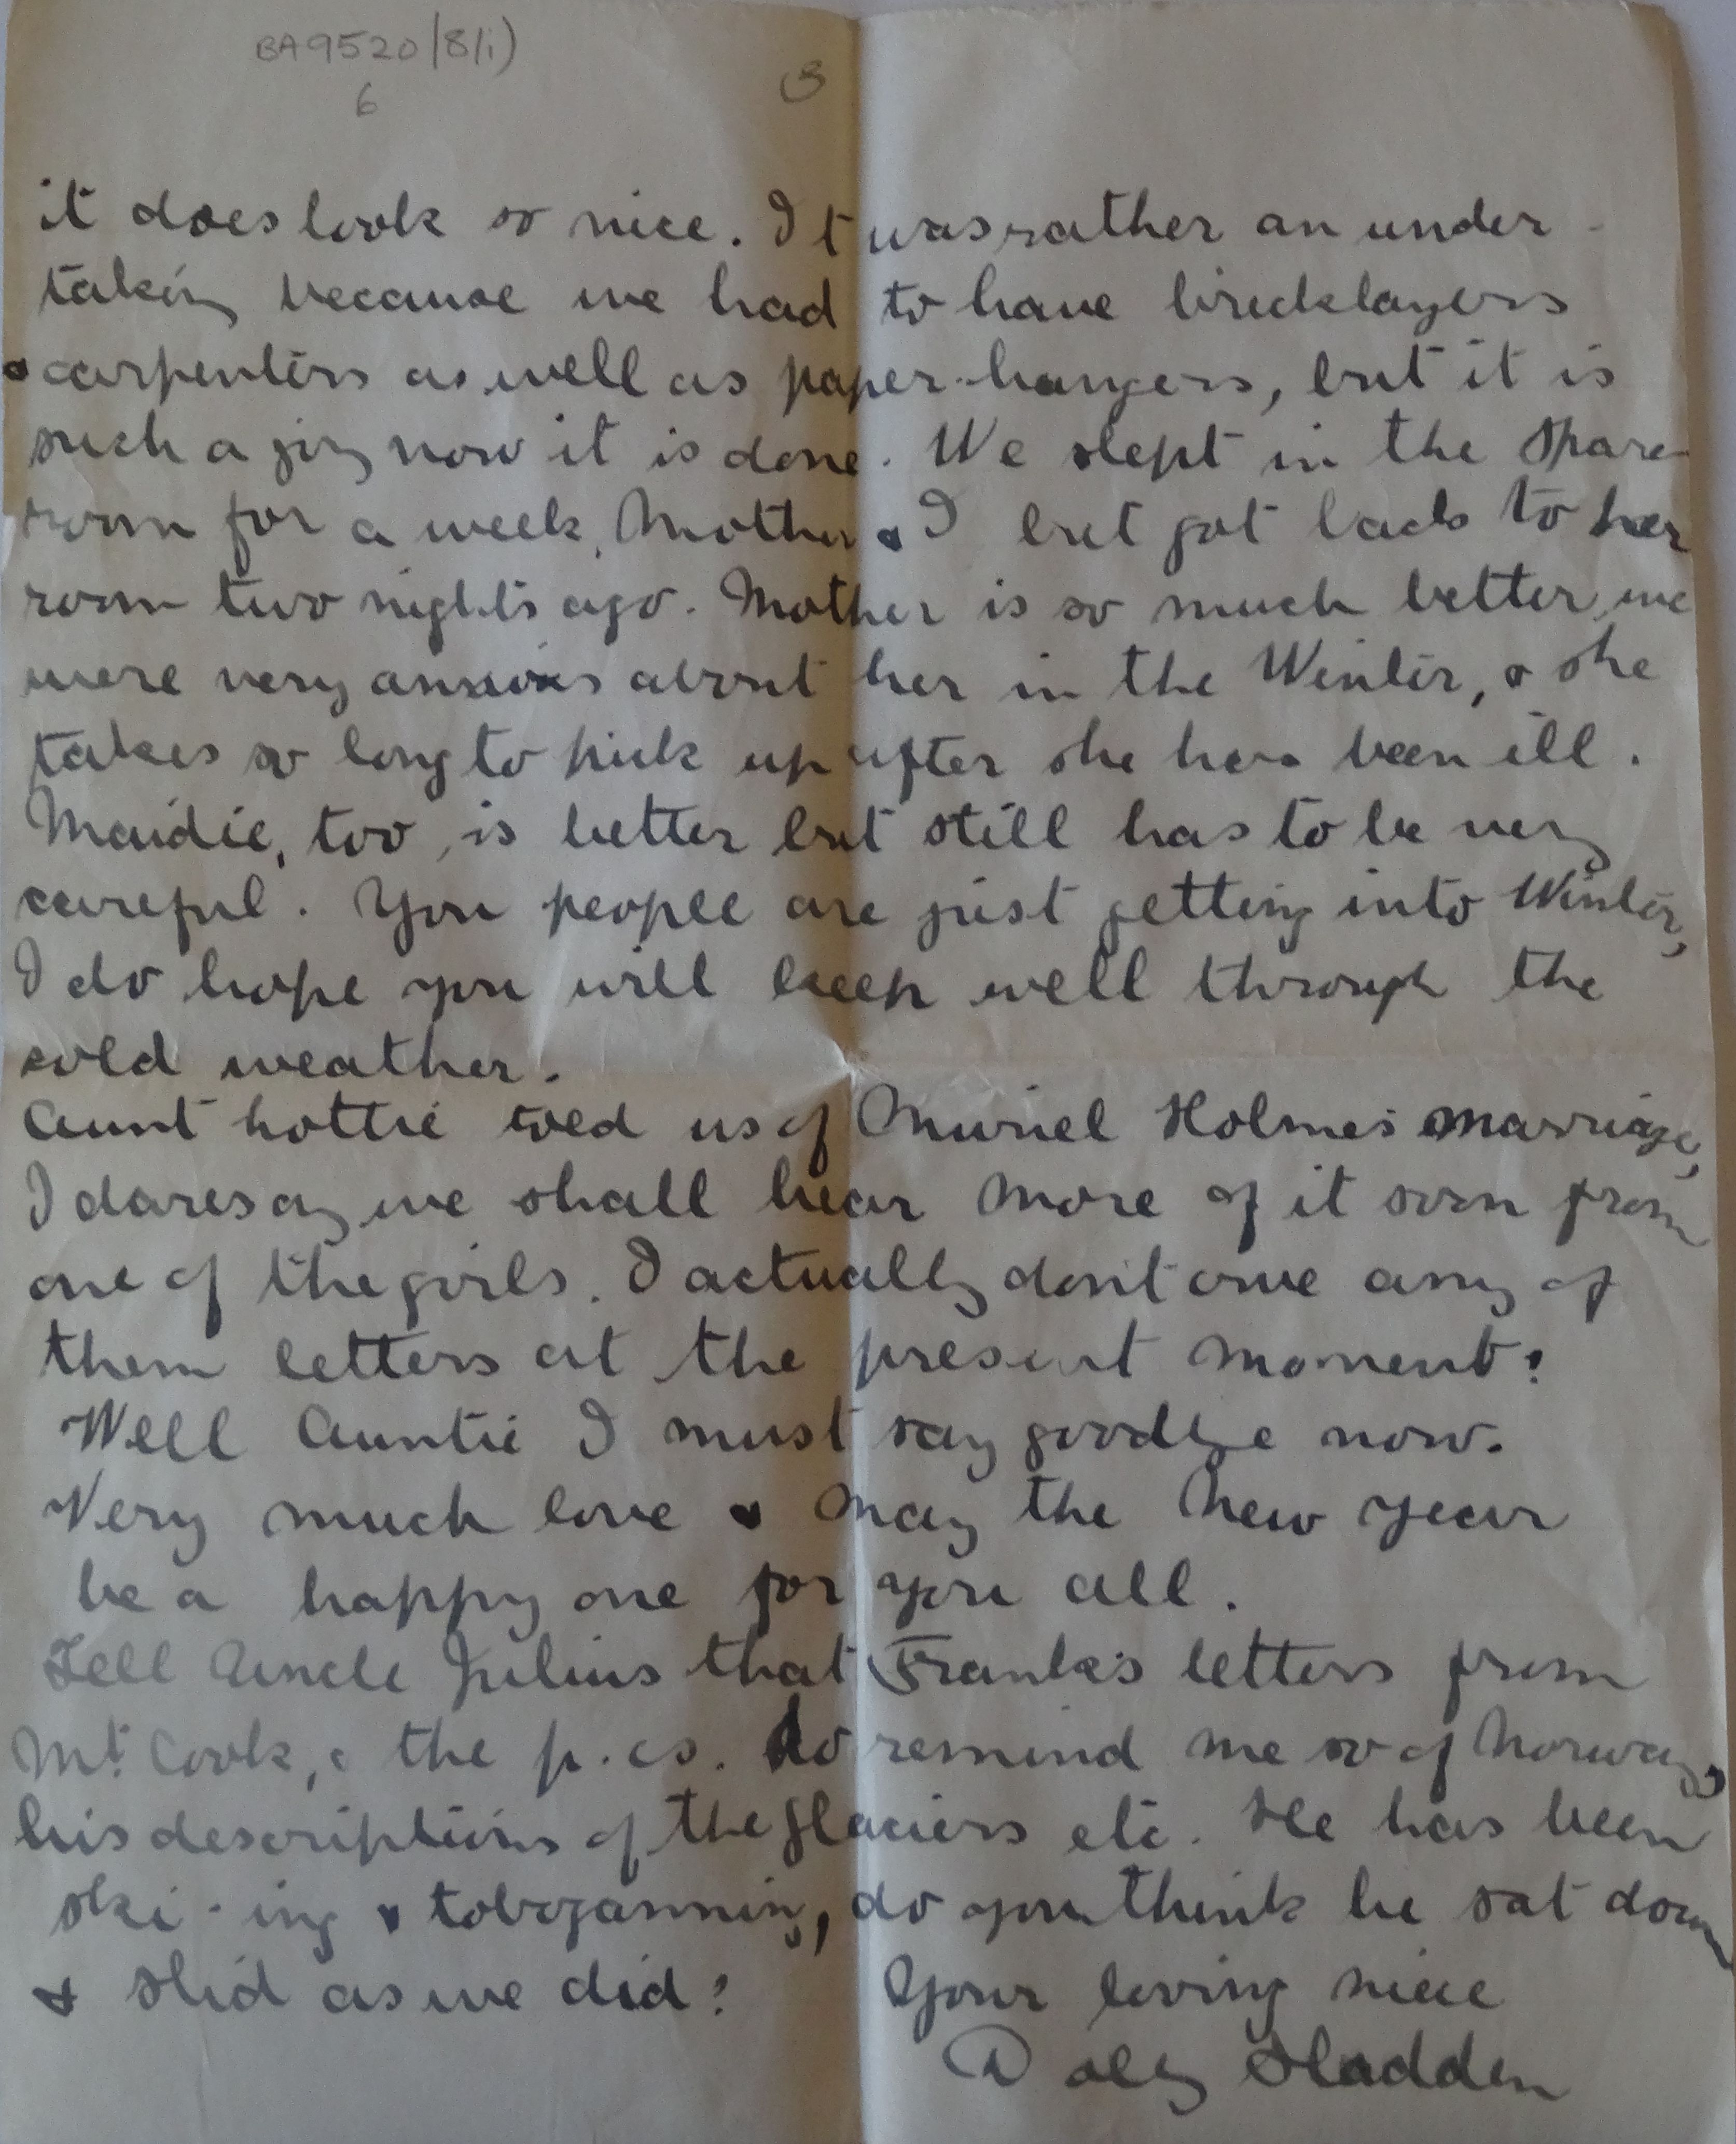 BA9520/8/i)
6
3
it does look so nice. It was rather an under-
taking because we had to have bricklayers
& carpenters as well as paper-hangers, but it is
such a joy now it is done. We slept in the spare
room for a week, Mother & I but got back to her
room two nights ago. Mother is so much better, we
were very anxious about her in the Winter, & she
takes so long to pick up after she has been ill.
Maidie, too, is better but still has to be very
careful. You people are just getting into Winter,
I do hope you will keep well through the
cold weather.
Aunt Lottie told us of Muriel Holmes marriage,
I daresay we shall hear more of it soon from
one of the girls. I actually don't owe any of
them letters at the present moment!
Well Auntie I must say goodbye now.
Very much love & may the New Year
be a happy one for you all.
Tell Uncle Julius that Frank's letters from
Mt. Cook, & the p.cs. do remind me so of Norway,
his descriptions of the glaciers etc. He has been
ski-ing & tobogganning, do you think he sat down
& slid as we did?    Your loving niece
Dolly Sladden